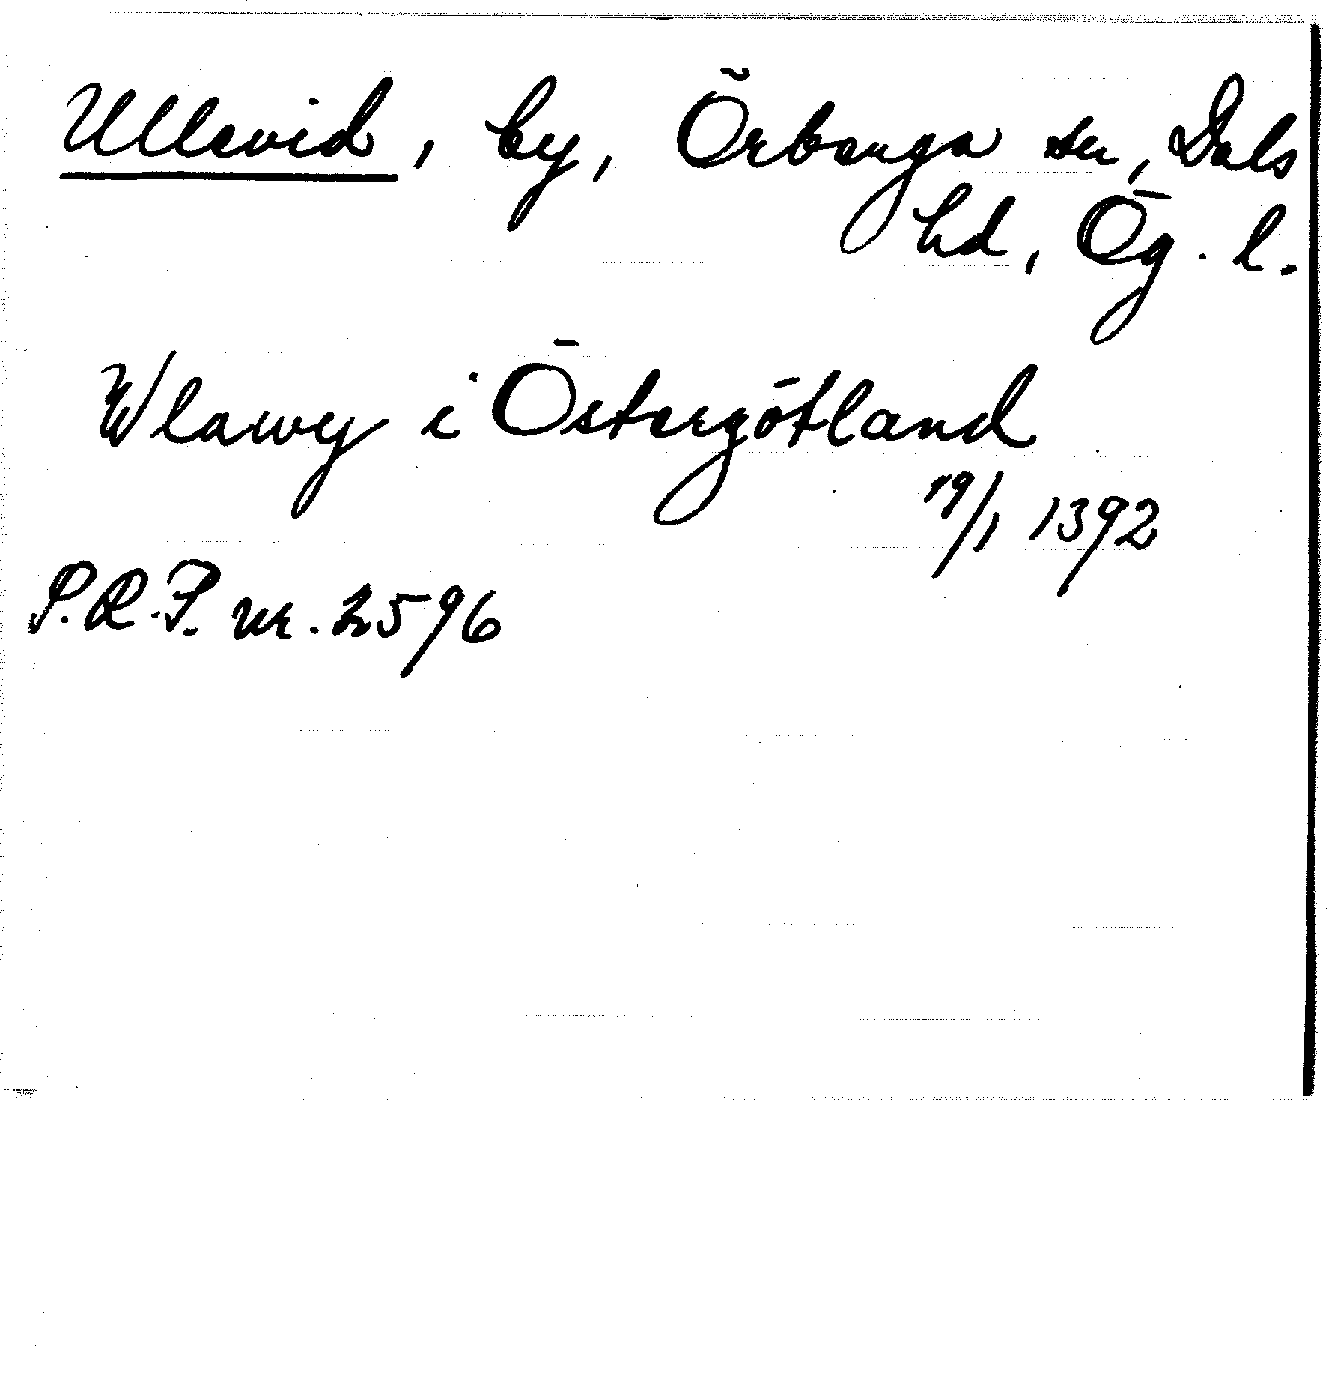 Ullevid, by, Örberga sn, Dals
hd, Ög. l.
Wlawy i Östergötland
19/1 1392
S.R.P. nr. 2596